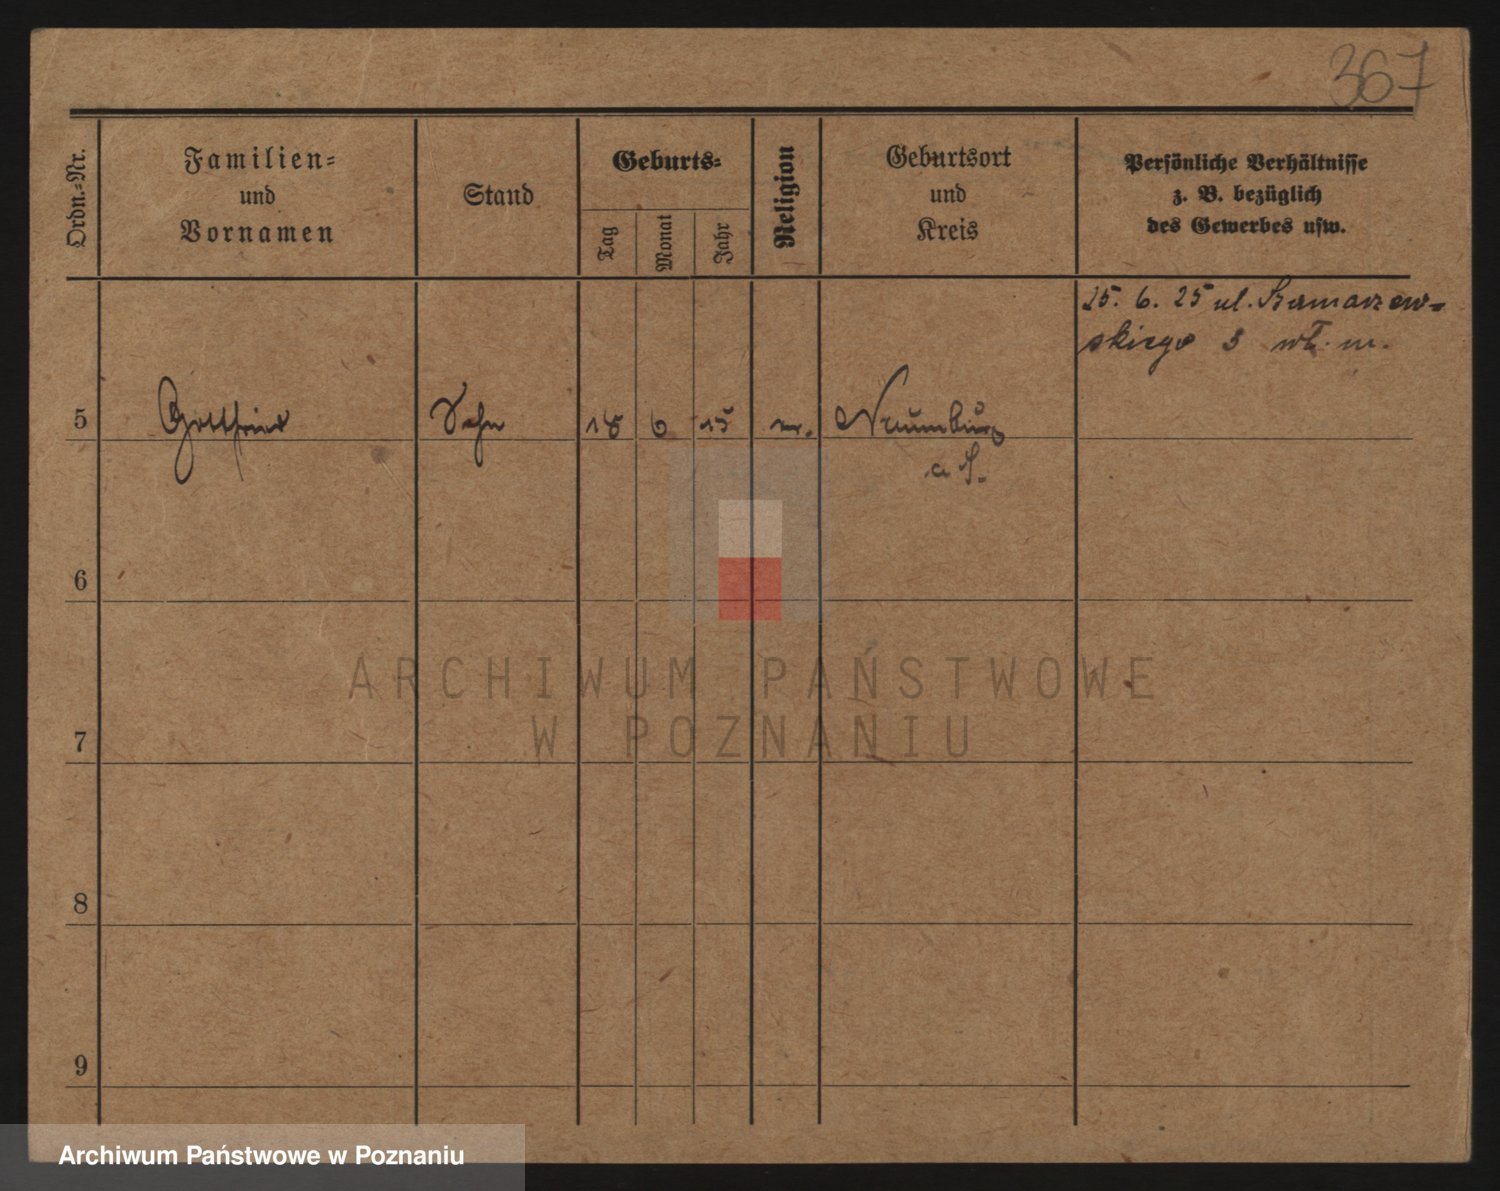 367
Ordn.=Nr.
Familien=
und
Vornamen
Stand
Geburts=
Tag
Monat
Jahr
Religion
Geburtsort
und
Kreis
Persönliche Verhältnisse
z. B. bezüglich
des Gewerbes usw.
25. 6. 25 ul. Szamarzew-
skiego 3 wł. m.
5 Gottfried Sohn 18 6 15 ev. Naumburg
a S.
6
7
8
9
ARCHIWUM PAŃSTWOWE
W POZNANIU
Archiwum Państwowe w Poznaniu